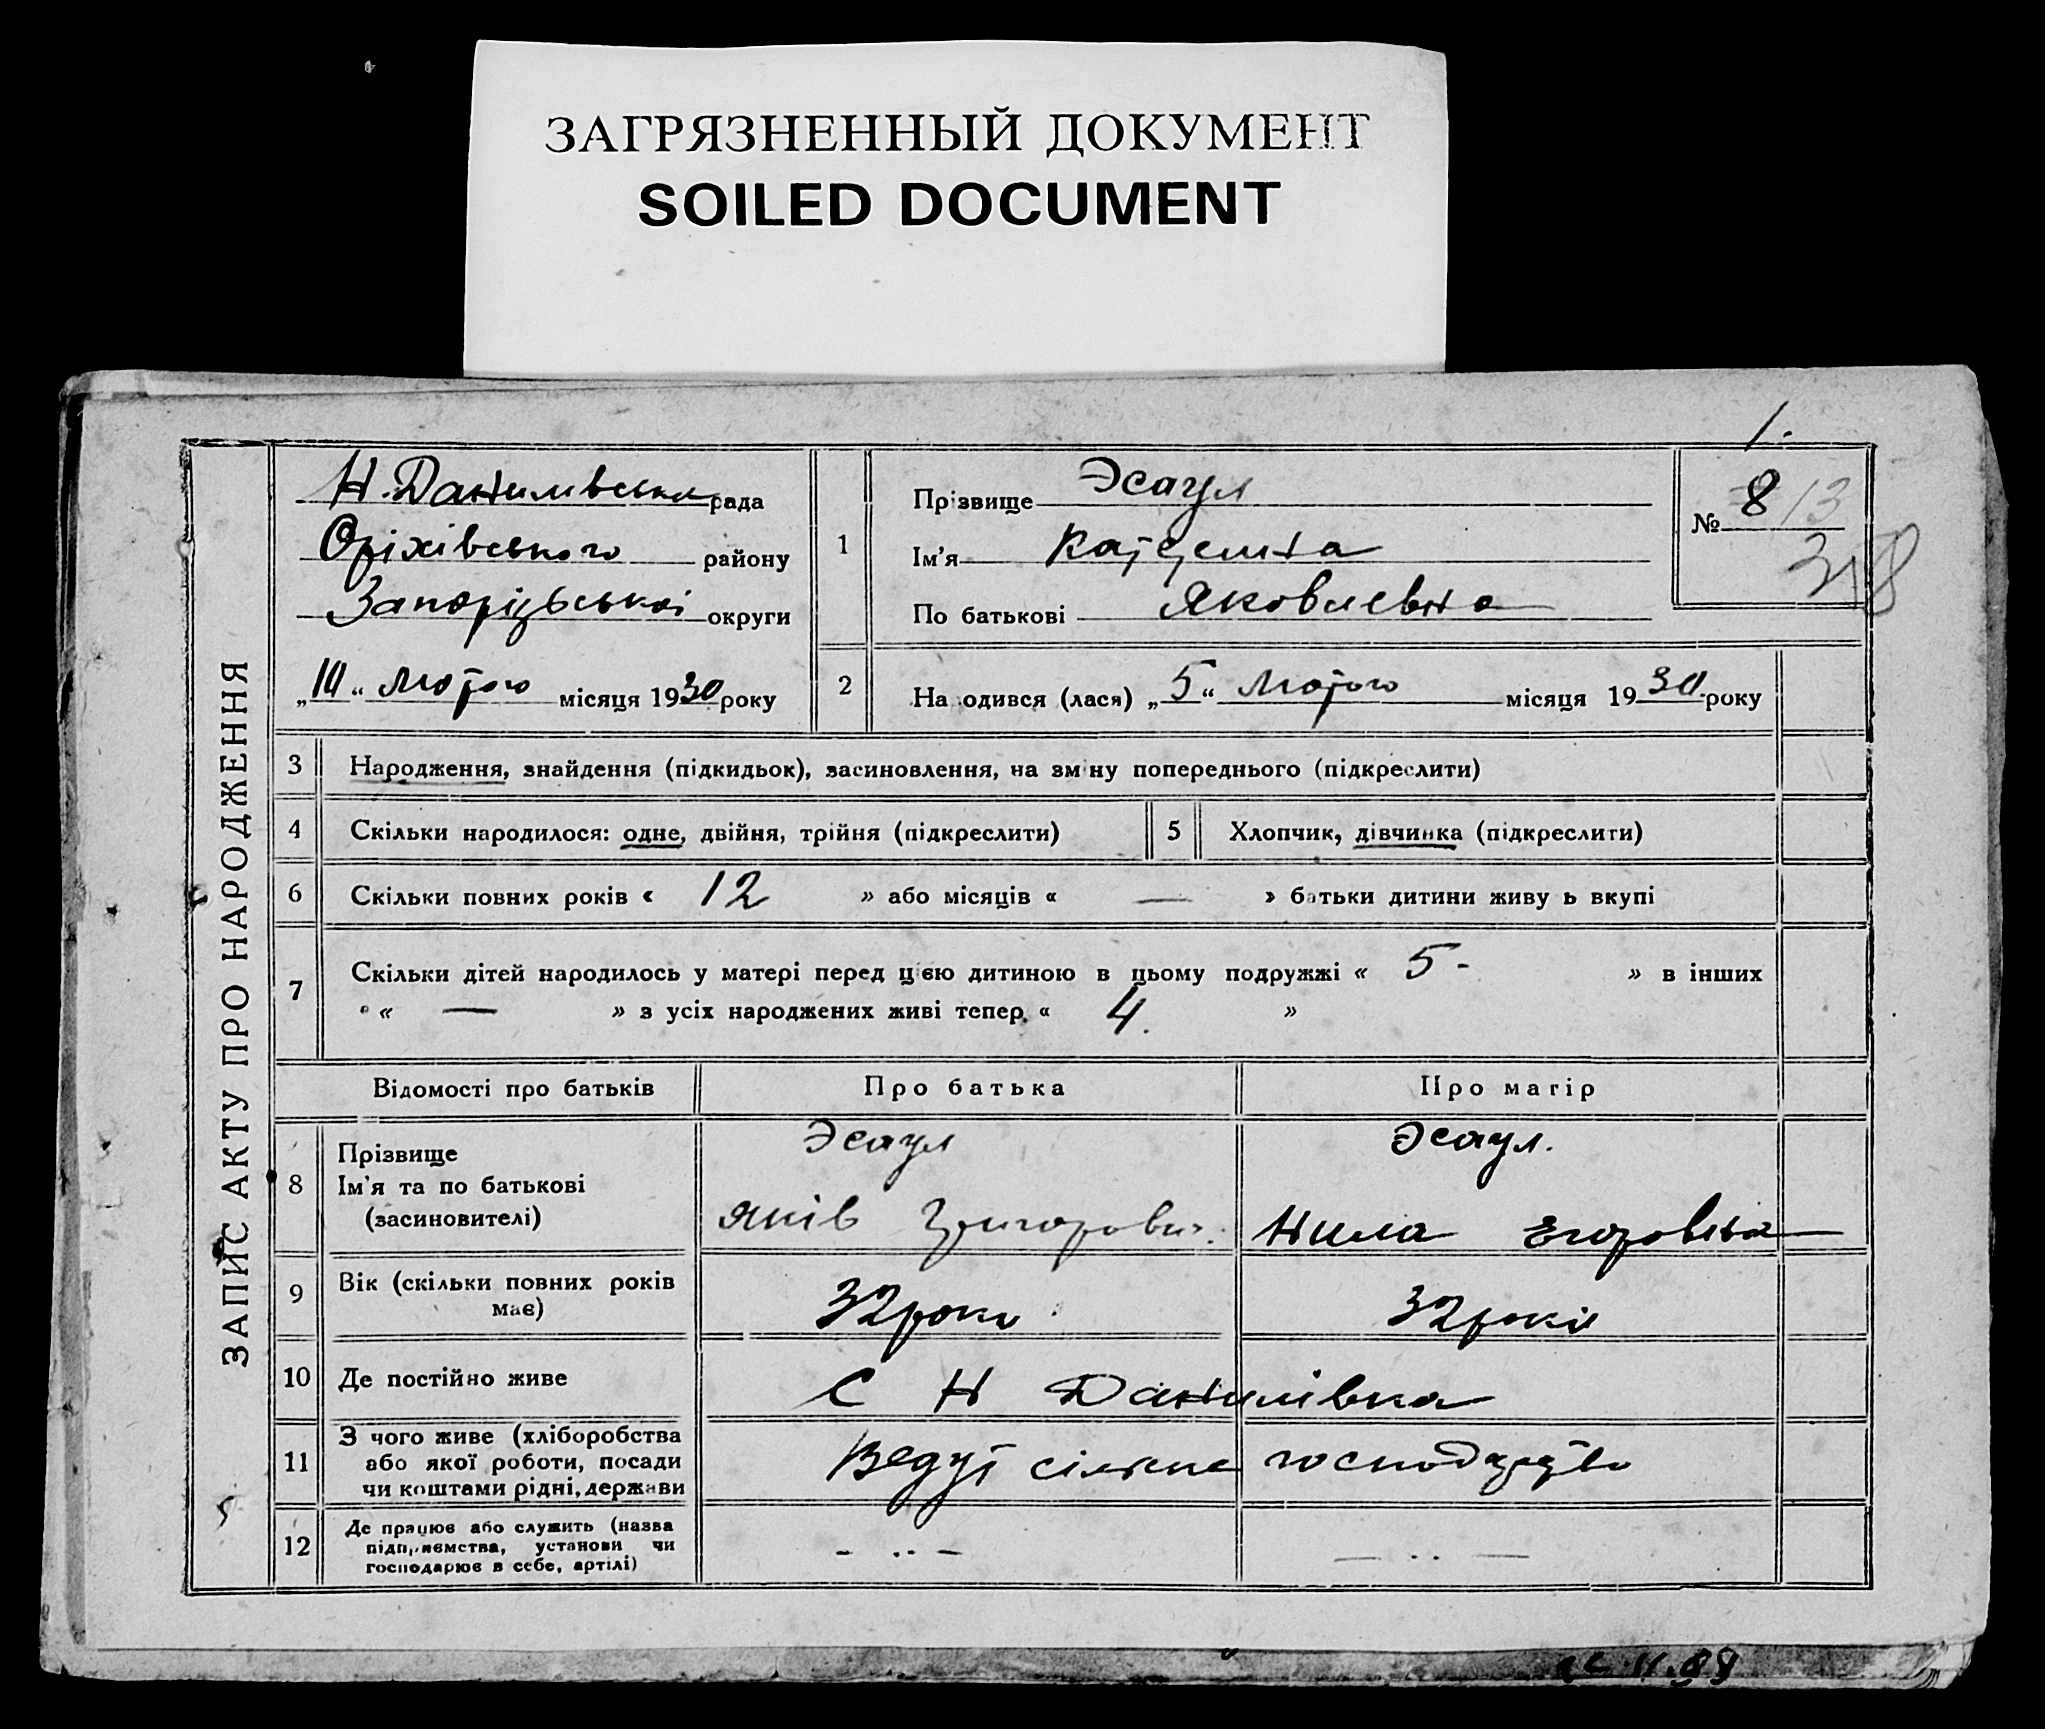 ЗАГРЯЗНЕННЫЙ ДОКУМЕНТ
SOILED DOCUMENT
1.
ЗАПИС АКТУ ПРО НАРОДЖЕННЯ
Н. Данилівська рада
Оріхівського району
Запорізької округи
„10“ лютого місяця 1930 року
1
Прізвище Эсаул
Ім'я Катерина
По батькові Яковлевна
№ 8 13
318
2
На одився (лася) „5“ лютого місяця 1930 року
3 Народження, знайдення (підкидьок), засиновлення, на зміну попереднього (підкреслити)
4 Скільки народилося: одне, двійня, трійня (підкреслити)
5 Хлопчик, дівчинка (підкреслити)
6 Скільки повних років « 12 » або місяців « — » батьки дитини живу ь вкупі
7 Скільки дітей народилось у матері перед цією дитиною в цьому подружжі « 5 - » в інших
« — » з усіх народжених живі тепер « 4. »
Відомості про батьків Про батька Про матір
8 Прізвище
Ім'я та по батькові
(засиновителі)
Эсаул
Яків Григорович.
Эсаул.
Нила Егоровна
9 Вік (скільки повних років
має)
32 роки
32 роки
10 Де постійно живе
С Н Данилівка
11 З чого живе (хліборобства
або якої роботи, посади
чи коштами рідні, держави
Ведут сільске господарство
12 Де працює або служить (назва
підприємства, установи чи
господарює в себе, артілі)
- .. -
— .. —